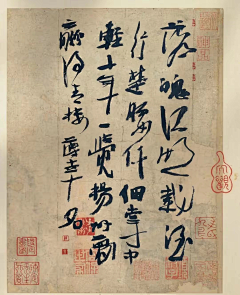 落魄江湖載酒
行楚腰纖細掌中
輕十年一覺揚州夢
贏得青樓薄幸名